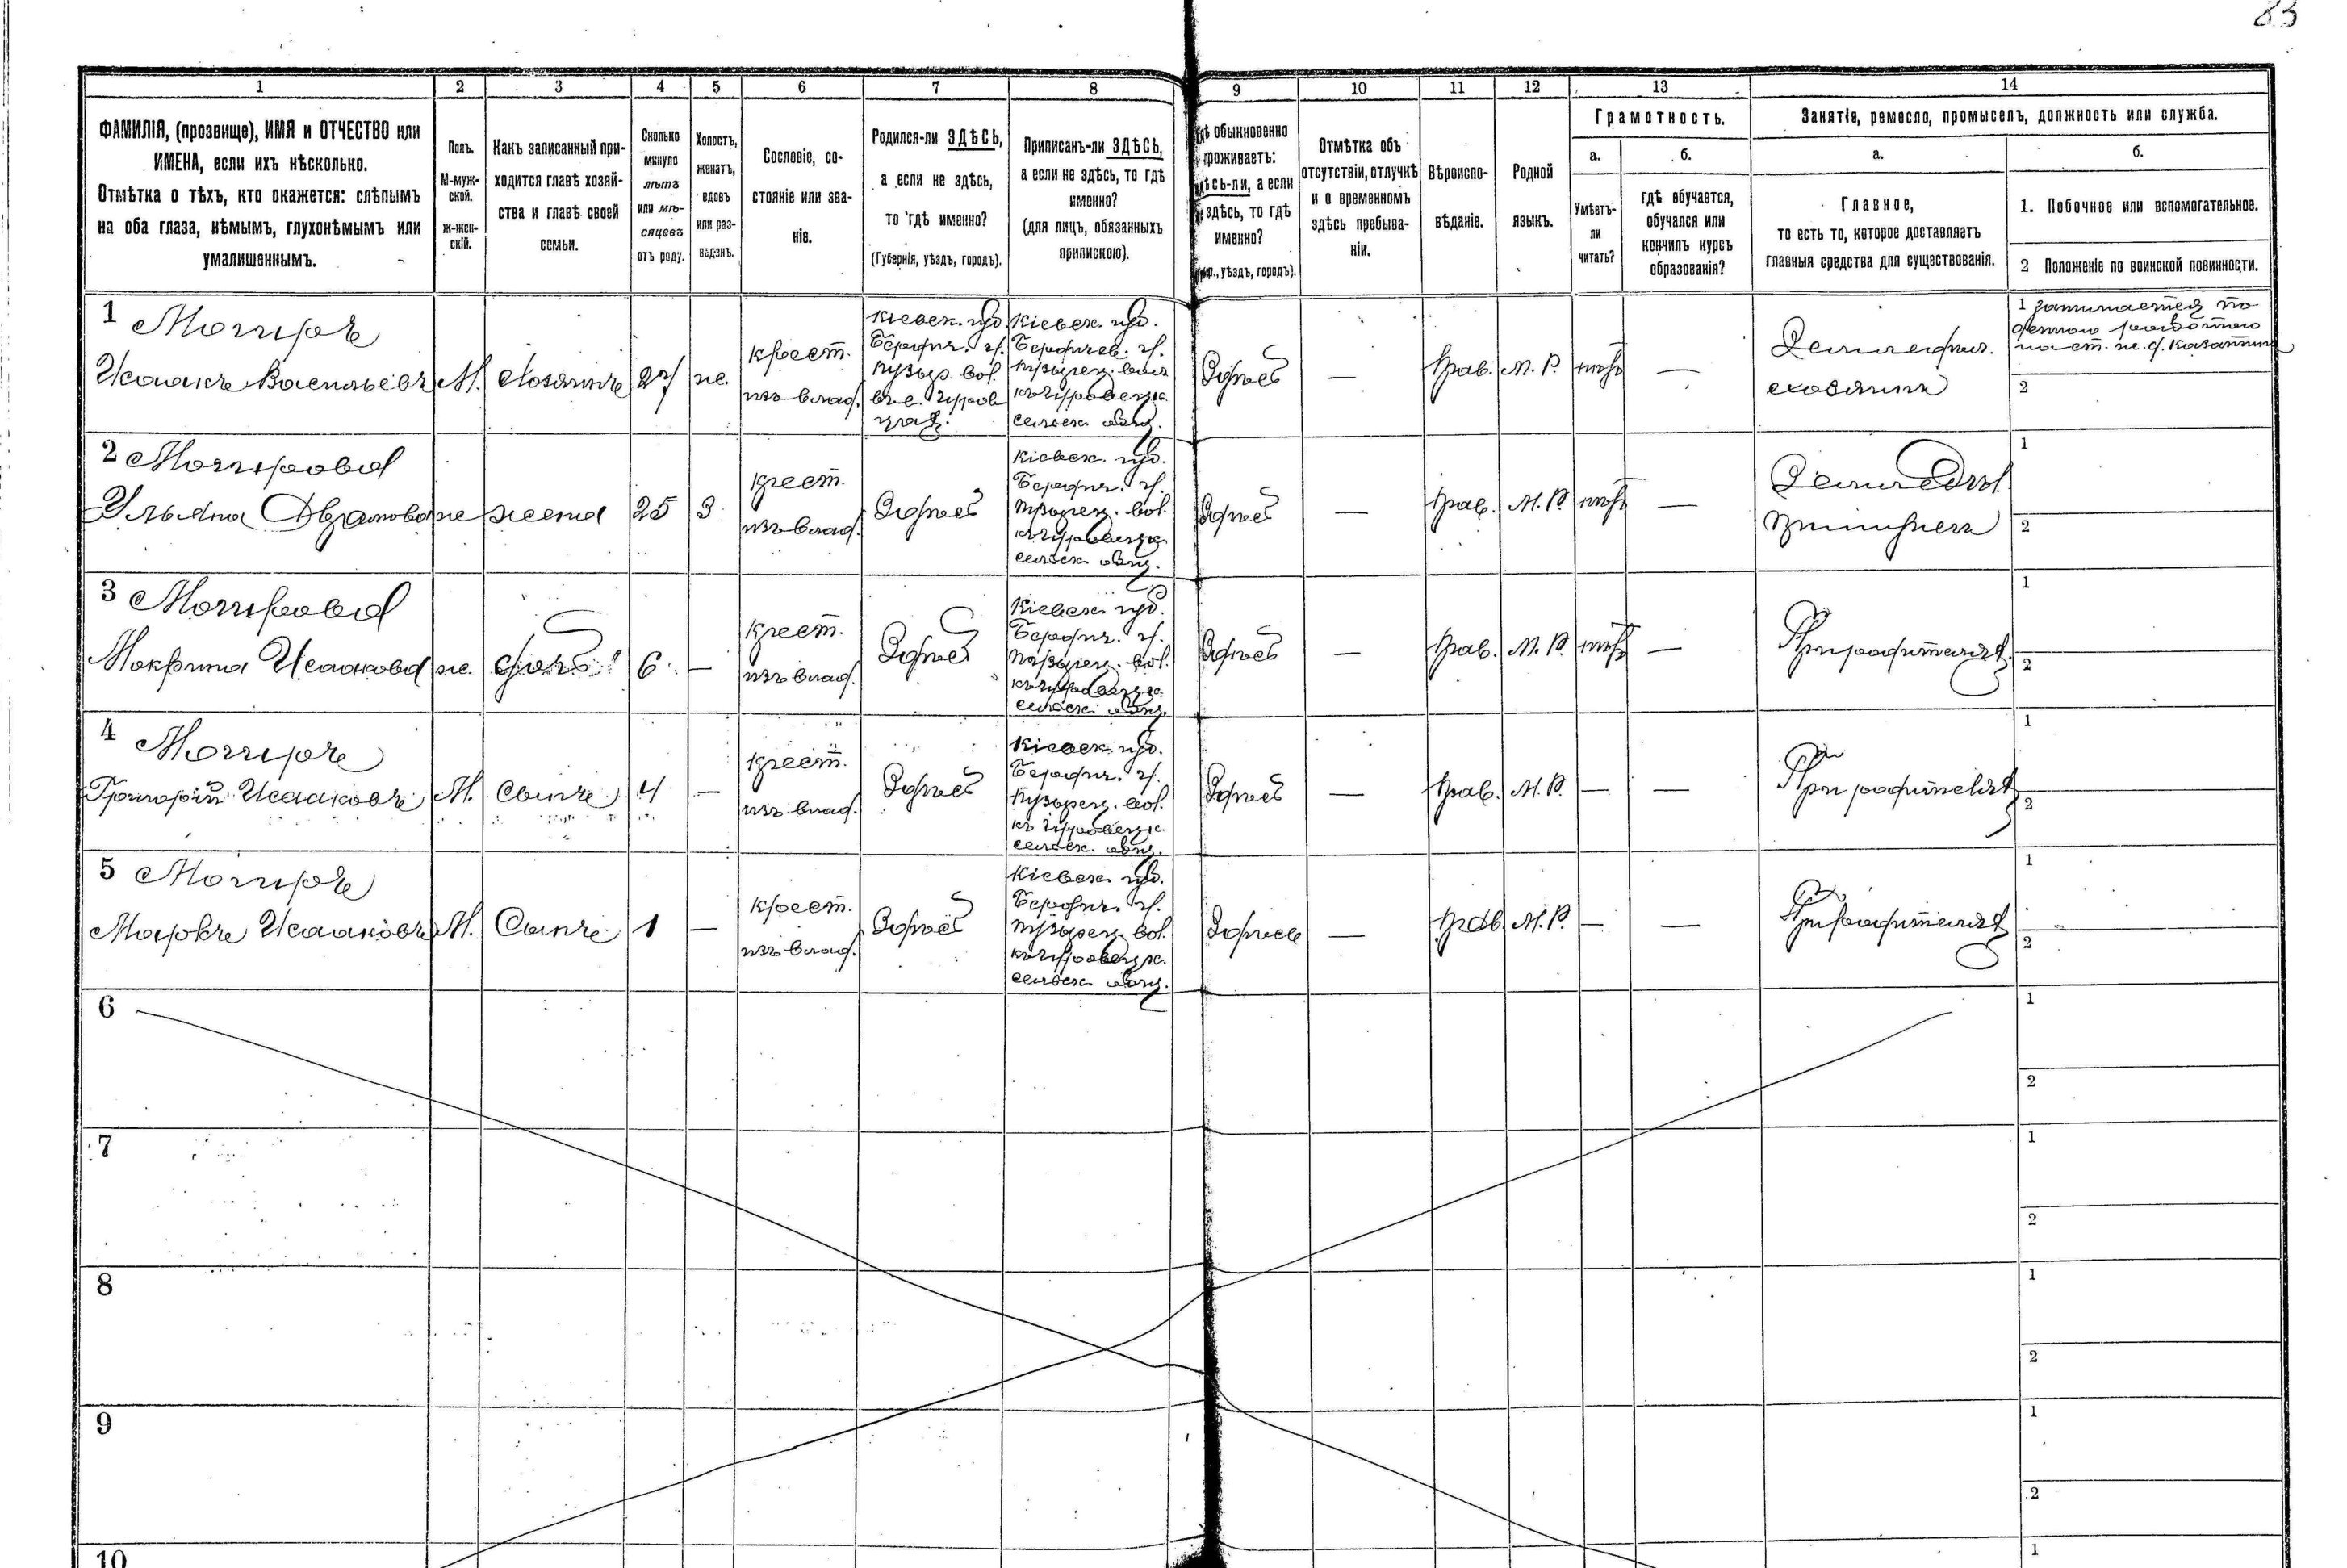 83
1 2 3 4 5 6 7 8 9 10 11 12 13 14
ФАМИЛІЯ, (прозвище), ИМЯ и ОТЧЕСТВО или
ИМЕНА, если ихъ нѣсколько.
Отмѣтка о тѣхъ, кто окажется: слѣпымъ
на оба глаза, нѣмымъ, глухонѣмымъ или
умалишеннымъ.
Полъ.
М-муж-
ской.
Ж-жен-
скій.
Какъ записанный при-
ходится главѣ хозяй-
ства и главѣ своей
семьи.
Сколько
минуло
лѣтъ
или мѣ-
сяцевъ
отъ роду.
Холостъ,
женатъ,
вдовъ
или раз-
веденъ.
Сословіе, со-
стояніе или зва-
ніе.
Родился-ли ЗДѢСЬ,
а если не здѣсь,
то гдѣ именно?
(Губернія, уѣздъ, городъ).
Приписанъ-ли ЗДѢСЬ,
а если не здѣсь, то гдѣ
именно?
(для лицъ, обязанныхъ
припискою).
обыкновенно
проживаетъ:
а если
здѣсь, то гдѣ
именно?
уѣздъ, городъ).
Отмѣтка объ
отсутствіи, отлучкѣ
и о временномъ
здѣсь пребыва-
ніи.
Вѣроиспо-
вѣданіе.
Родной
языкъ.
Грамотность.
а.
Умѣетъ-
ли
читать?
б.
гдѣ обучается,
обучался или
кончилъ курсъ
образованія?
Занятіе, ремесло, промыселъ, должность или служба.
а.
Главное,
то есть то, которое доставляетъ
главныя средства для существованія.
б.
1. Побочное или вспомогательное.
2 Положеніе по воинской повинности.
1 Могиръ
Исаакъ Васильевъ
М.
Хозяинъ
27
же.
крест.
изъ влад.
Кіевск. губ.
Бердич. у.
вол.
Кіевск. губ.
Бердичев. у.
сельск. общ.
Здѣсь
—
Прав.
М. Р.
нѣтъ
—
Земледѣл.
хозяинъ
1 занимается по
денною работою
на ст. ж. д. Казатинъ
2
2 Могирова
Ульяна
же
жена
25
З
крест.
изъ влад.
Здѣсь
Кіевск. губ.
Бердич. у.
вол.
сельск. общ.
Здѣсь
—
Прав.
М. Р.
нѣтъ
—
1
2
3 Могирова
Мокрина Исаакова
же.
дочь
6
—
крест.
изъ влад.
Здѣсь
Кіевск. губ.
Бердич. у.
вол.
сельск. общ.
Здѣсь
—
Прав.
М. Р.
нѣтъ
—
При родителяхъ
1
2
4 Могиръ
Григорій Исааковъ
М.
Сынъ
4
—
крест.
изъ влад.
Здѣсь
Кіевск. губ.
Бердич. у.
вол.
сельск. общ.
Здѣсь
—
Прав.
М. Р.
—
—
При родителяхъ
1
2
5 Могиръ
Марко Исааковъ
М.
Сынъ
1
—
крест.
изъ влад.
Здѣсь
Кіевск. губ.
Бердич. у.
вол.
сельск. общ.
Здѣсь
—
Прав.
М. Р.
—
—
При родителяхъ
1
2
6
1
2
7
1
2
8
1
2
9
1
2
10
1